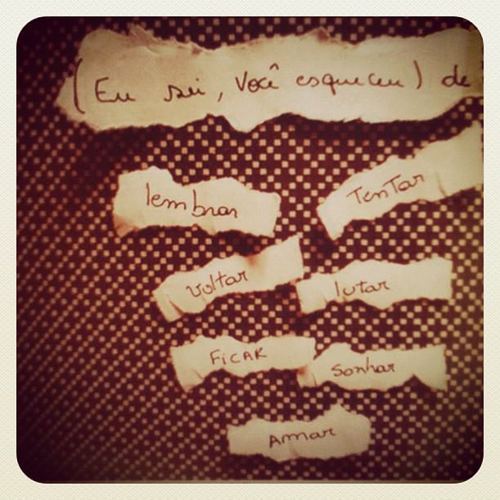 (Eu sei, Você esqueceu) de
lembrar
TenTar
voltar
lutar
FICAR
Sonhar
Amar